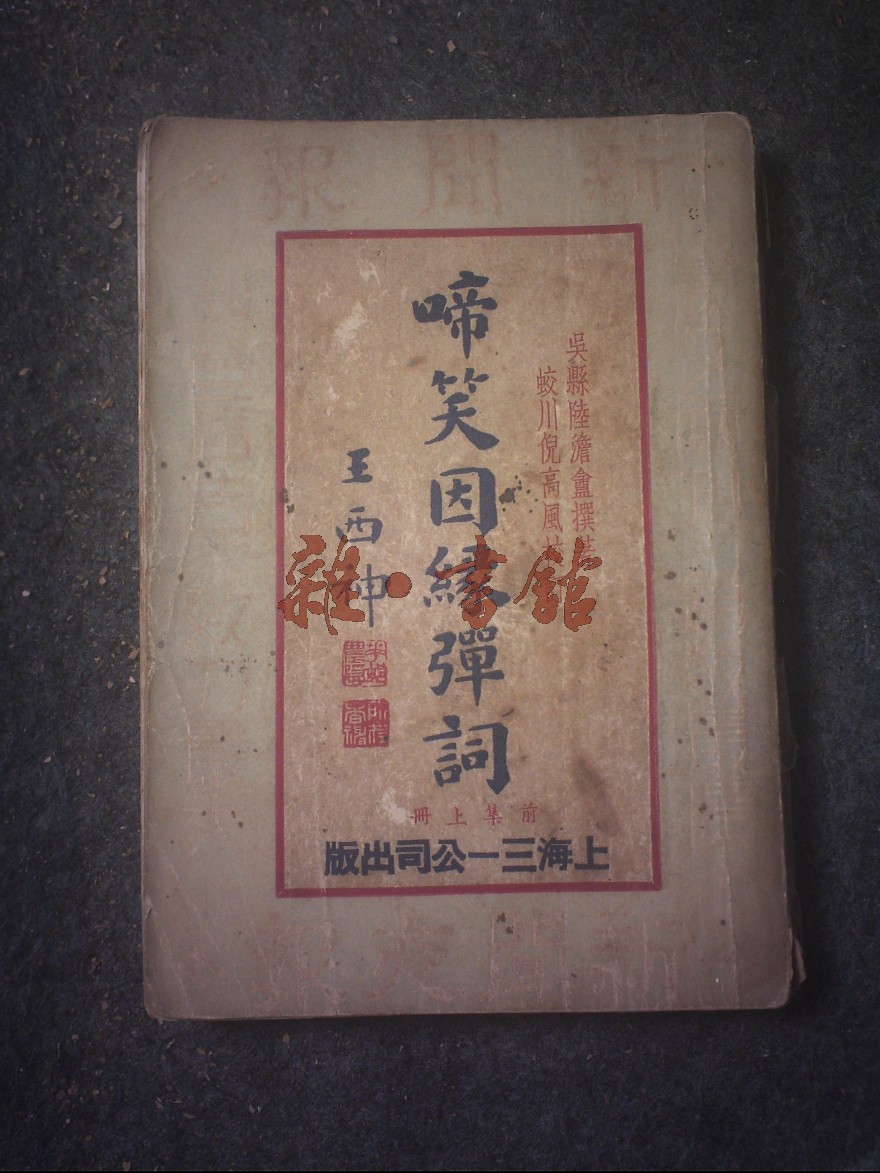 新聞報
吳縣陸澹盦撰
蛟川倪高風
啼笑因緣彈詞
王西神
雜·書館
前集上冊
上海三一公司出版